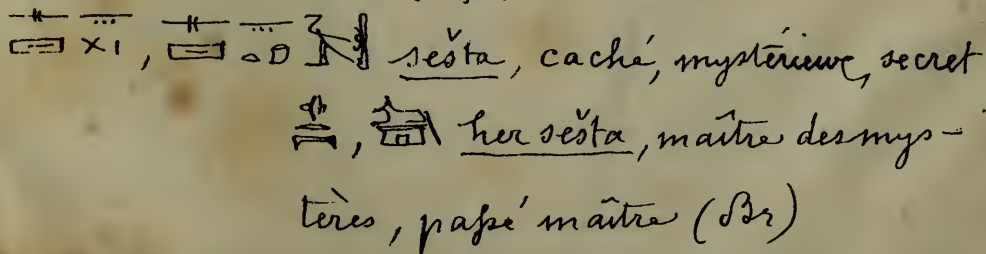 sešta, caché, mystérieux, secret
her sešta, maître des mys-
tères, passé maître (Br)